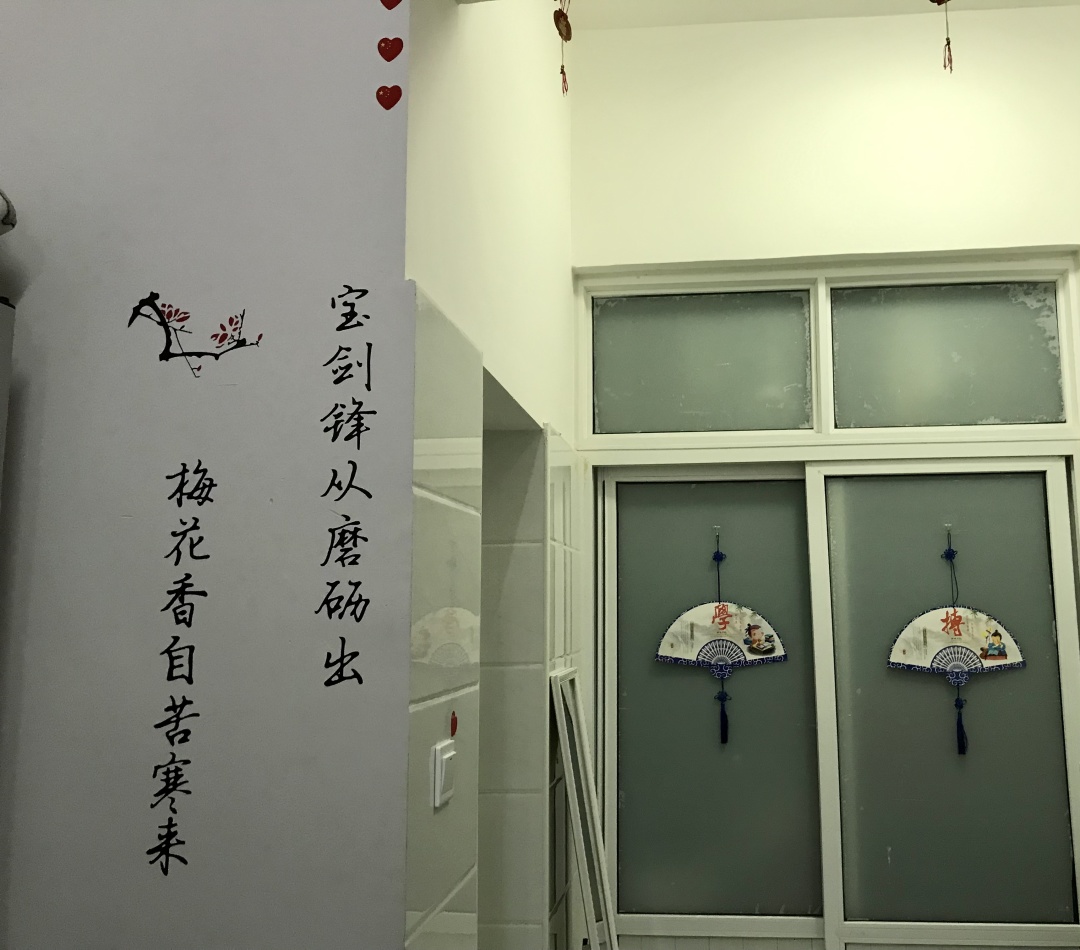 宝剑锋从磨砺出
梅花香自苦寒来
學